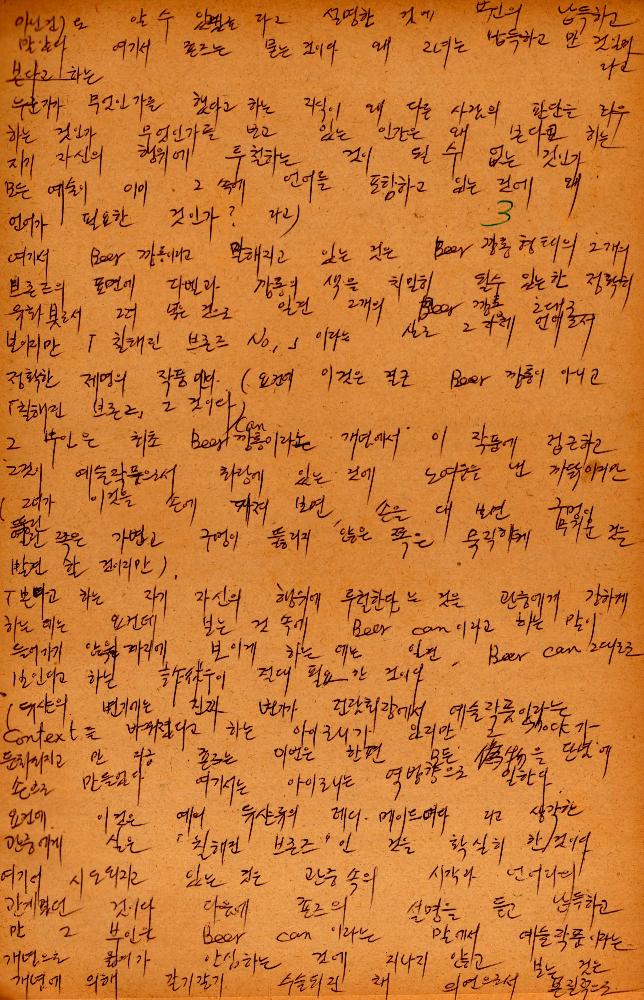 알 수 있었는 라고 설명한 것에 부인의 납득하고
만 것이다 여기서 존즈는 묻는 것이다 왜 그녀는 납득하고 만 것인가
본다고 하는 라고
누군가가 무엇인가를 했다고 하는 지식이 왜 다른 사람의 판단을 좌우
하는 것인가 무엇인가를 보고 있는 인간은 왜 본다고 하는
자기 자신의 행위에 투철하는 것이 될 수 없는 것인가
모든 예술이 이미 그 속에 언어를 포함하고 있는 것에 왜
언어가 필요한 것인가? 라고)
3
여기서 Beer 깡통이라고 말해지고 있는 것은 Beer 깡통 형태의 2개의
브론즈의 표면에 라벨과 깡통의 색을 치밀히 될수 있는 한 정확히
그려 넣은 것으로 일견 2개의 Beer 깡통 그대로
보이지만 「칠해진 브론즈 No,」이라는 실로 그 자체 언어로서
정확한 제명의 작품이다. (요컨대 이것은 결국 Beer 깡통이 아니고
「칠해진 브론즈, 그 것이다)
그 부인은 최초 Beer 깡통이라는 개념에서 이 작품에 접근하고
can
그것이 예술작품으로서 화랑에 있는 것에 노여움을 낸 까닭이지만
(그녀가 이것을 손에 보면, 손을 대 보면 구멍이
뚫린 쪽은 가볍고 구멍이 뚫리지 않은 쪽은 묵직하게 무거운 것을
발견 할 것이지만),
「본다고 하는 자기 자신의 행위에 투철한다」는 것을 관중에게 강하게
하는 데는 요컨대 보는 것 속에 Beer can이라고 하는 말이
들어가지 않을 보이게 하는 데는 일견, Beer can 그대로
1호인다고 하는 詐術이 절대 필요한 것이다
(뒤샹의 변기에는 진짜 변기가 전람회장에서 예술작품이라는
Context로 바꿔졌다고 하는 아이로니가 있지만 그 70年가
만 지금 존즈는 이번은 한편 모든 偽物을 단번에
손으로 만들었다 여기서는 아이로니는 역방향으로 일한다.
요컨대 이것은 예의 뒤샹류의 레디·메이드이다 라고 생각한
관중에게 실은 "칠해진 브론즈"인 것을 확실히 한것이다
여기에 시도되고 있는 것은 관중속의 시각과 언어와의
관계였던 것이다 다음에 존즈의 설명을 듣고 납득하고
만 그 부인은 Beer can이라는 말에서 예술작품이라는
개념으로 옮겨가 안심하는 것에 지나지 않고 보는 것은
개념에 의해 갈기갈기 수술되진 채 의연으로서